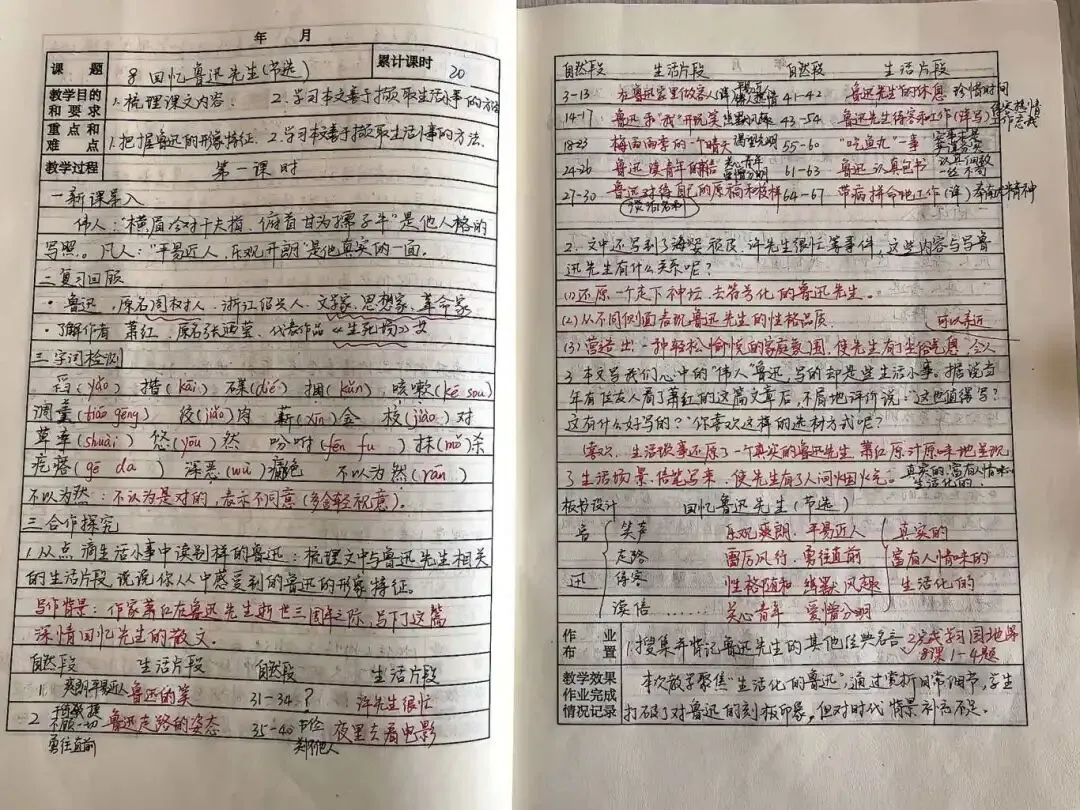 年 月
课 题 8 回忆鲁迅先生(节选) 累计课时 20
教学目的和要求 1.梳理课文内容. 2.学习本文善于撷取生活小事的方法
重点和难点 1.把握鲁迅的形象特征. 2.学习本文善于撷取生活小事的方法.
教学过程 第一课时
一新课导入
伟人:“横眉冷对千夫指,俯首甘为孺子牛”是他人格的
写照。凡人:“平易近人,乐观开朗”是他真实的一面.
二复习回顾
·鲁迅,原名周树人,浙江绍兴人.文学家.思想家.革命家
·了解作者 萧红.原名张迺莹.代表作品《生死场》
三字词检测
舀(yǎo) 揩(kāi) 碟(dié) 捆(kǔn),咳嗽(ké sou)
调羹(tiáo gēng) 绞(jiǎo)肉 薪(xīn)金 校(jiào)对
草率(shuài) 悠(yōu)然 吩咐(fēn fu) 抹(mǒ)杀
疙瘩(gē da) 深恶(wù) 不以为然(rán)
不以为然:不认为是对的,表示不同意(多含轻视意).
三合作探究
1.从点滴生活小事中读别样的鲁迅:梳理文中与鲁迅先生相关
的生活片段,说说你从中感受到的鲁迅的形象特征.
写作背景:作家萧红在鲁迅先生逝世三周年之际,写下了这篇
深情回忆先生的散文.
自然段 生活片段 自然段 生活片段
1. 爽朗平易近人 鲁迅的笑 31-34 ? 许先生很忙
2 鲁迅走路的姿态 35-40 夜里去看电影
勇往直前
自然段 生活片段 自然段 生活片段
3-13 在鲁迅家里做客 41-42 鲁迅先生的休息 珍惜时间
14-17 鲁迅和“我”开玩笑 幽默风趣 43-54 鲁迅先生陪客和工作(详写)
18-23 梅雨雨季的一个晴天 55-60 “吃鱼丸”一事
24-26 鲁迅读青年的来信 关心青年 爱憎分明 61-63 鲁迅认真包书 认真细致 一丝不苟
27-30 鲁迅对待自己的原稿和校样 64-67 带病拼命地工作(详)
淡泊名利
2.文中还写到了海婴 许先生很忙等事件,这些内容与写鲁
迅先生有什么关系呢?
(1)还原一个走下神坛.去符号化的鲁迅先生.
(2)从不同侧面表现鲁迅先生的性格品质. 可以亲近
(3)营造出一种轻松愉悦的家庭氛围,使先生有了生活气息,令人
3.本文写我们心中的“伟人”鲁迅,写的却是些生活小事.据说当
年有位友人看了萧红的这篇文章后,不屑地评价说:“这也值得写?
这有什么好写的?”你喜欢这样的选材方式呢?
喜欢.生活琐事还原了一个真实的鲁迅先生.萧红原汁原味地呈现
了生活场景.信笔写来,使先生有了人间烟火气。真实的,富有人情味
生活化的.
板书设计 回忆鲁迅先生(节选)
鲁 笑声 乐观爽朗.平易近人 真实的
走路 雷厉风行.勇往直前 富有人情味的
迅 待客 性格随和 幽默风趣 生活化的
读信…… 关心青年 爱憎分明
作业布置 1.搜集并背记鲁迅先生的其他经典名言 2.完成学习园地第
8课1-4题
教学效果 本次教学聚焦“生活化的鲁迅”,通过赏析日常细节,学生
作业完成情况记录 打破了对鲁迅的刻板印象,但对时代背景补充不足.